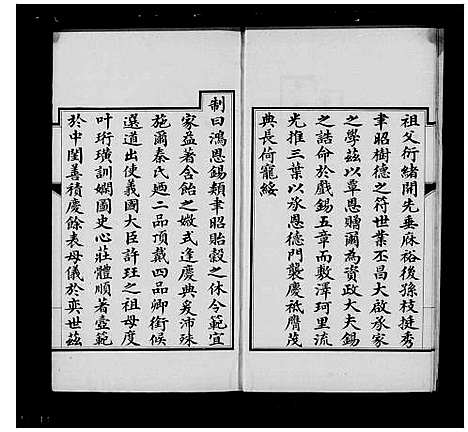 祖父衍緒開先垂庥裕後孫枝挺秀
聿昭樹德之符世業丕昌大啟承家
之學茲以覃恩贈爾為資政大夫錫
之誥命於戲錫五章而敷澤珂里流
光推三葉以承恩德門襲慶祗膺茂
典長荷寵綏
制曰鴻恩錫類聿昭貽穀之休令範宜
家益著含飴之媺式逢慶典爰沛殊
施爾秦氏迺二品頂戴四品卿銜候
選道出使義國大臣許珏之祖母度
叶珩璜訓嫻圖史心莊體順著壼範
於中閨善積慶餘表母儀於奕世茲